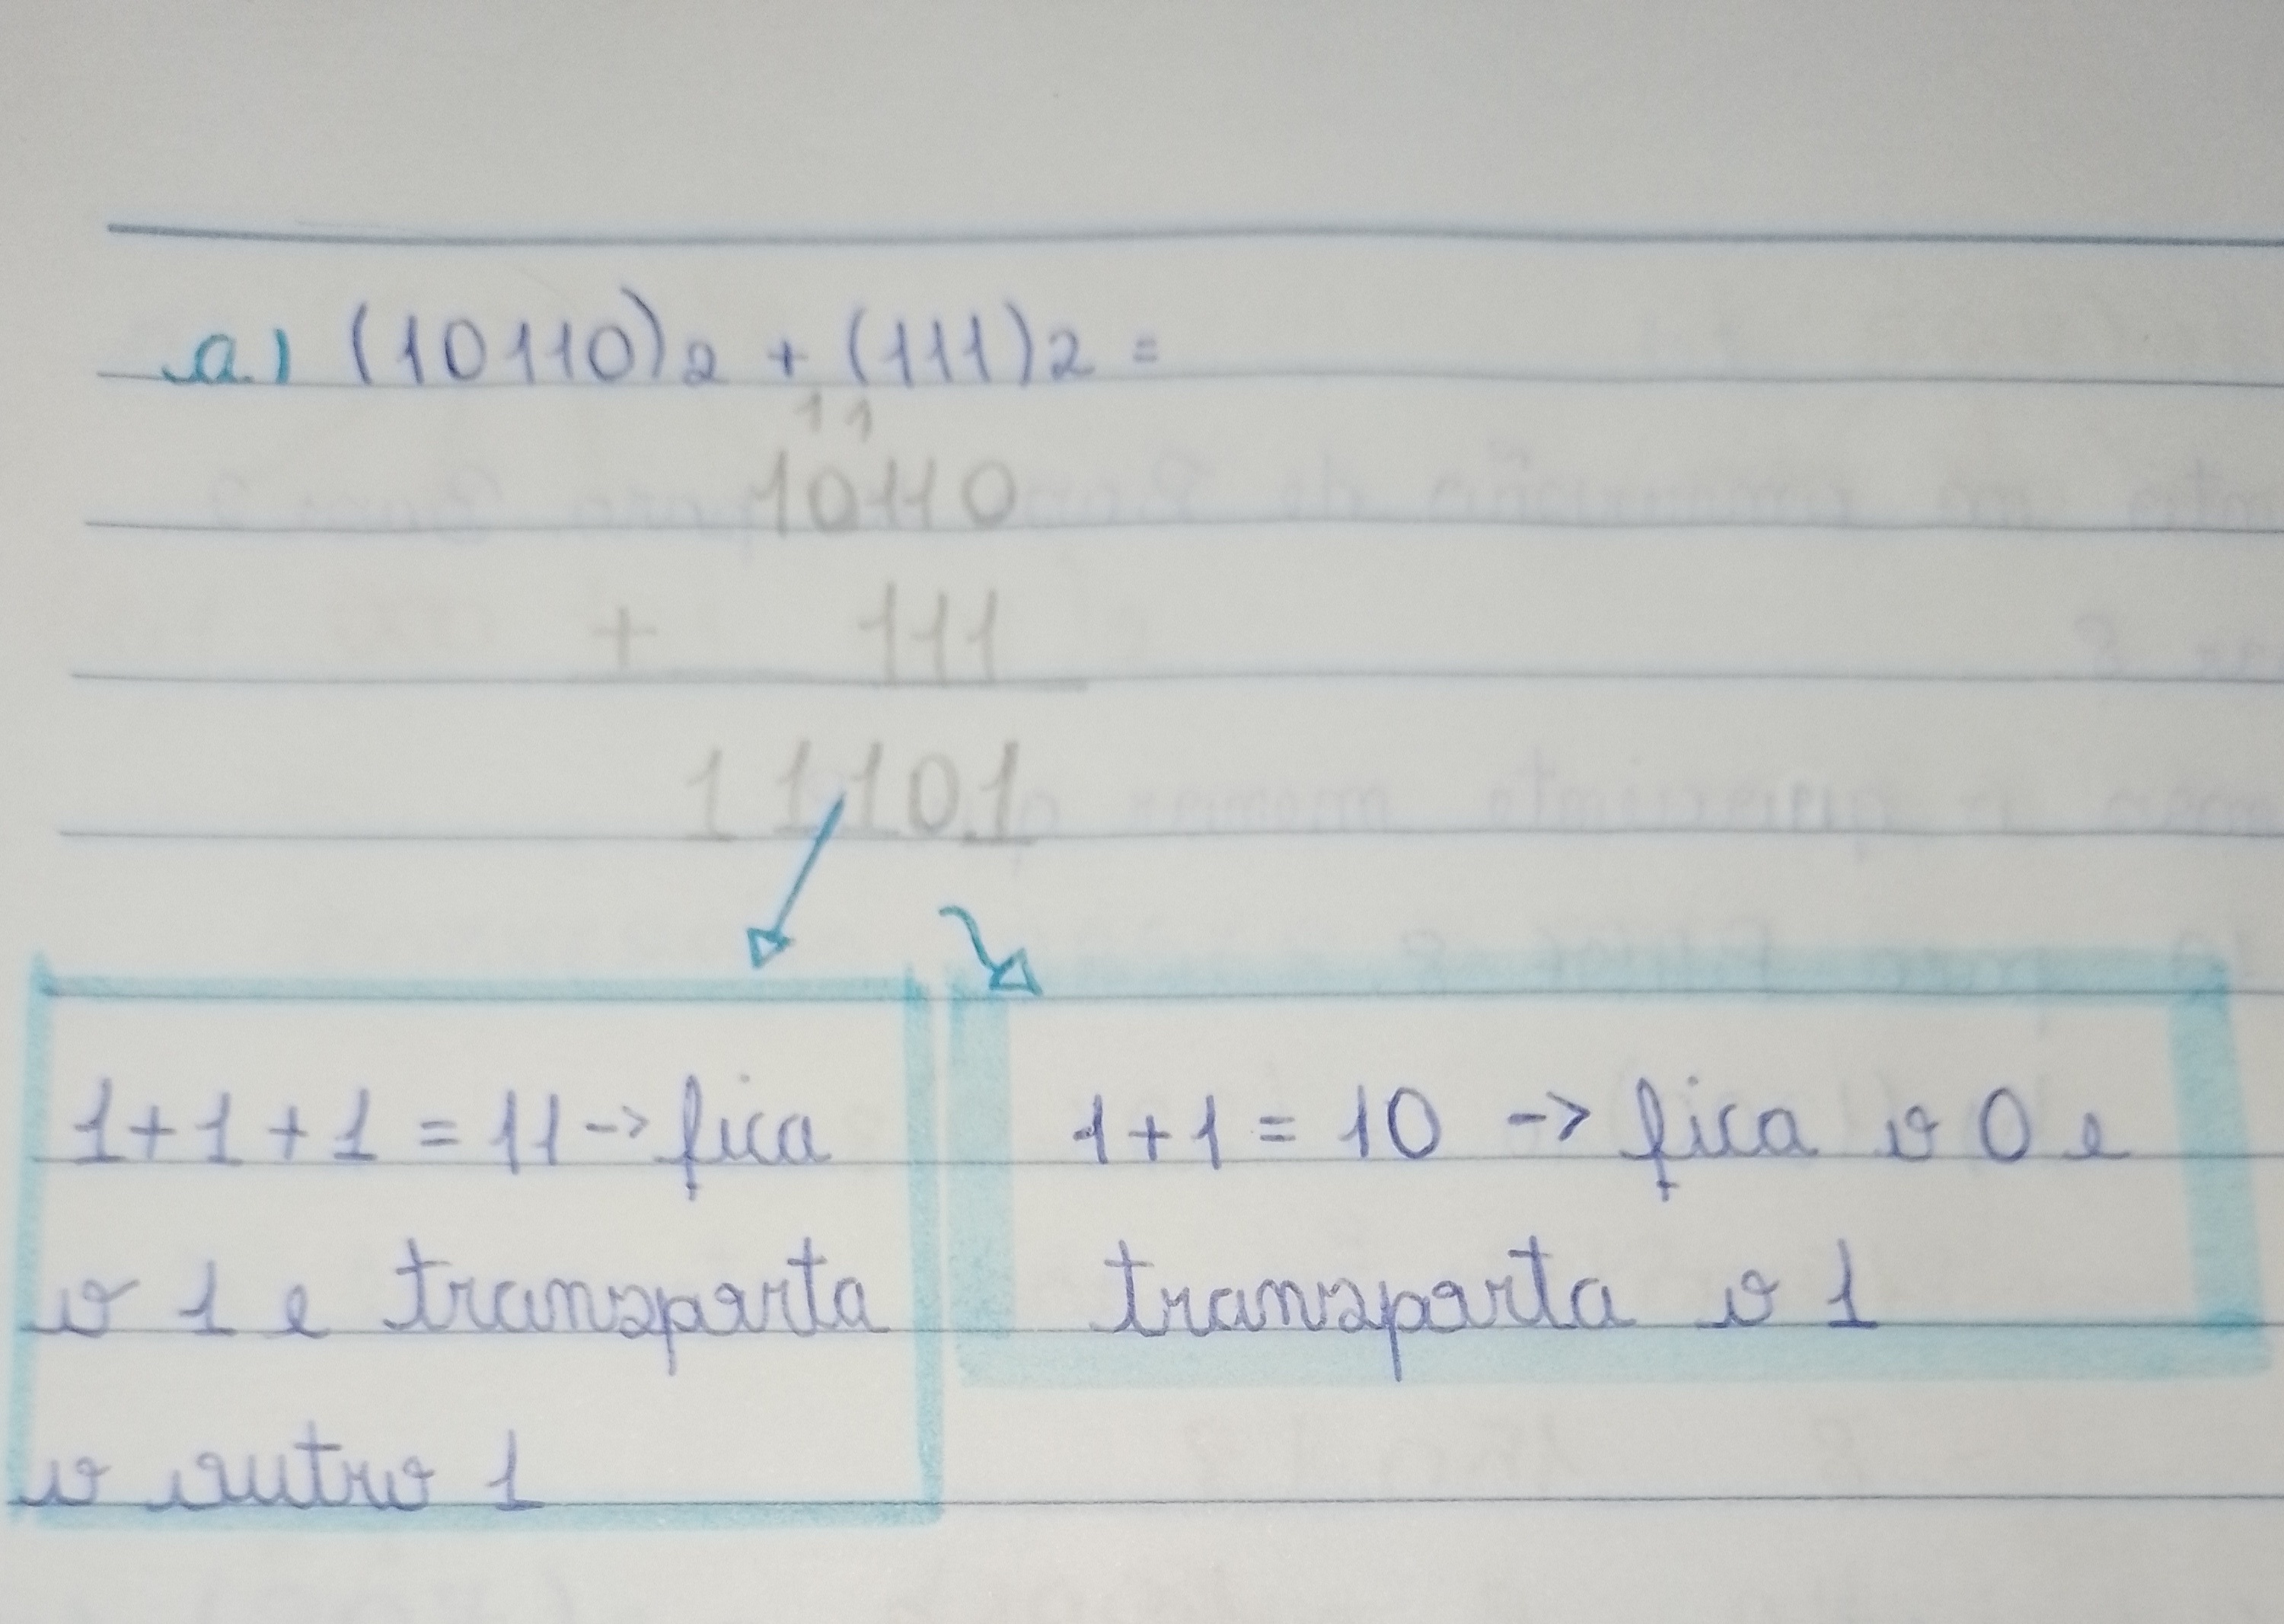 a) (10110)2 + (111)2 =
11
10110
+ 111
11101
1+1+1 = 11 -> fica
o 1 e transporta
o outro 1
1+1 = 10 -> fica o 0 e
transporta o 1